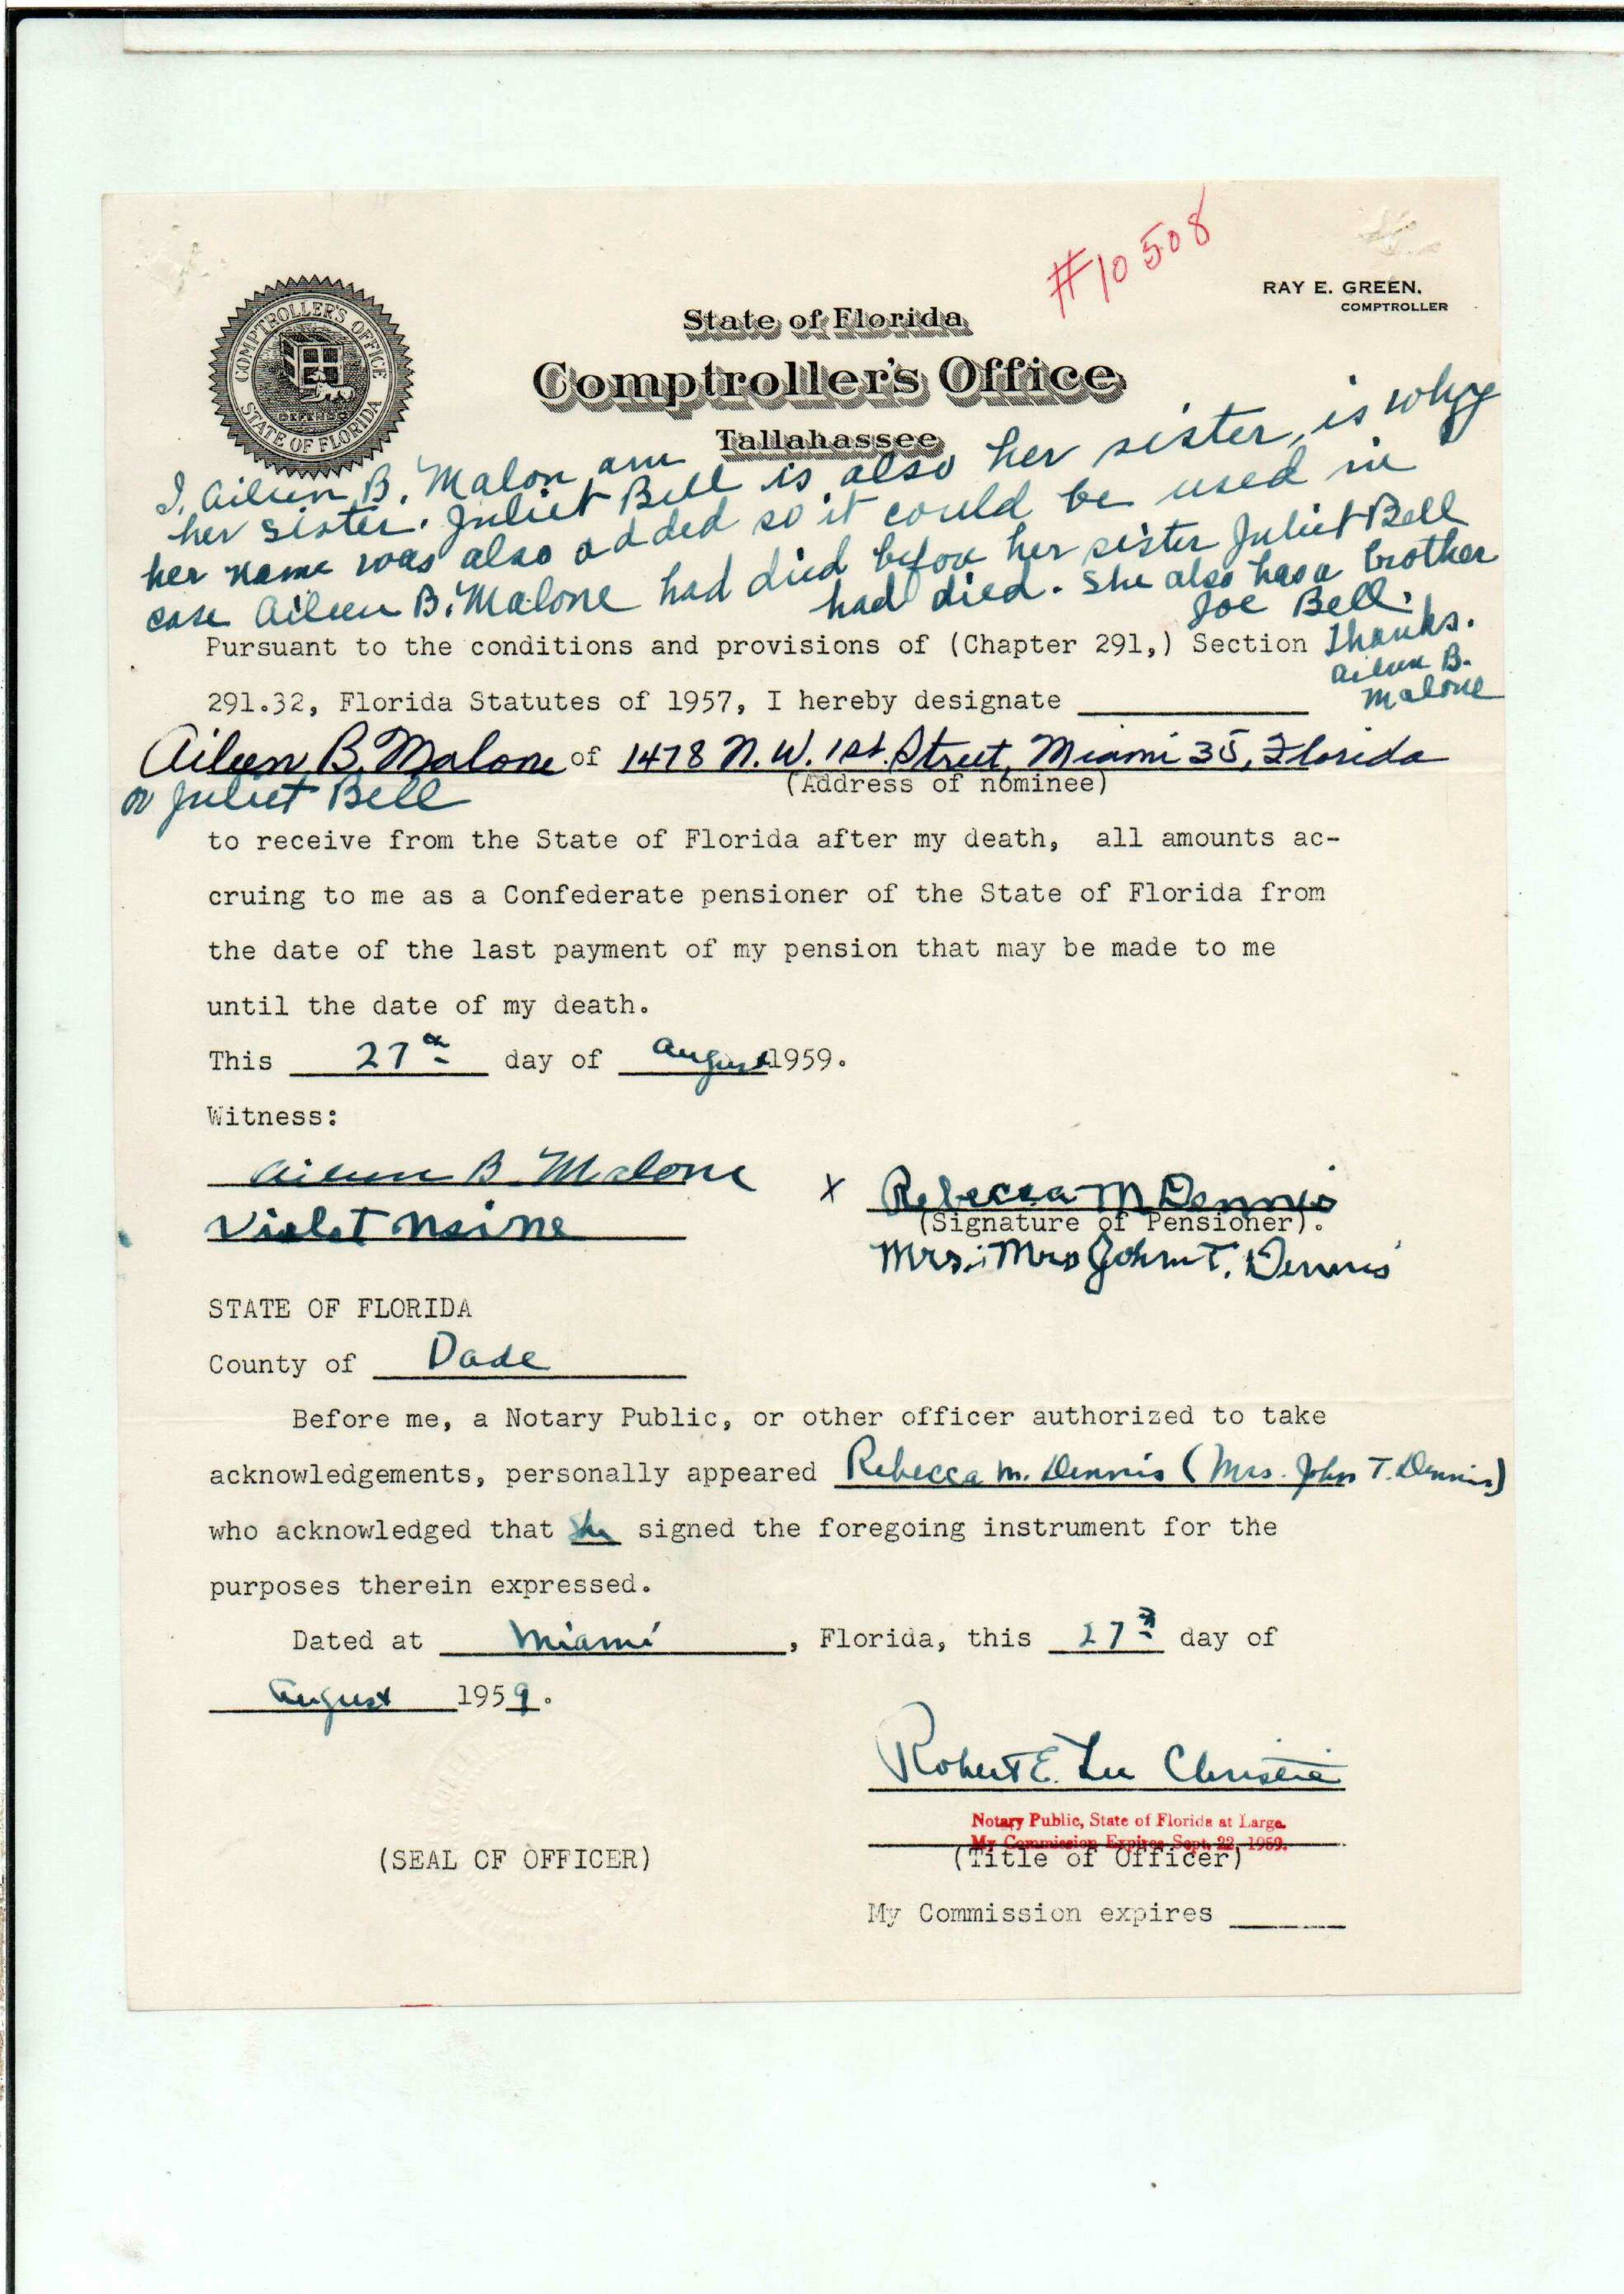 #10508
RAY E. GREEN,
COMPTROLLER
COMPTROLLER'S OFFICE
STATE OF FLORIDA
State of Florida
Comptroller's Office
Tallahassee
I, Aileen B. Malon am
her sister. Juliet Bell is also her sister, is why
her name was also added so it could be used in
case Aileen B. Malone had died before her sister Juliet Bell
had died. She also has a brother
Joe Bell.
Thanks.
Aileen B.
Malone
Pursuant to the conditions and provisions of (Chapter 291,) Section
291.32, Florida Statutes of 1957, I hereby designate
Aileen B. Malone of 1478 N.W. 1st. Street, Miami 35, Florida
(Address of nominee)
or Juliet Bell
to receive from the State of Florida after my death, all amounts ac-
cruing to me as a Confederate pensioner of the State of Florida from
the date of the last payment of my pension that may be made to me
until the date of my death.
This 27th day of August 1959.
Witness:
Aileen B. Malone
X Rebecca M Dennis
(Signature of Pensioner).
Violet
Mrs. Mrs John T. Dennis
STATE OF FLORIDA
County of Dade
Before me, a Notary Public, or other officer authorized to take
acknowledgements, personally appeared Rebecca M. Dennis (Mrs. John T. Dennis)
who acknowledged that she signed the foregoing instrument for the
purposes therein expressed.
Dated at Miami, Florida, this 27th day of
August 1959.
Robert E. Lee Christie
Notary Public, State of Florida at Large.
My Commission Expires Sept. 22, 1959.
(SEAL OF OFFICER)
(Title of Officer)
My Commission expires